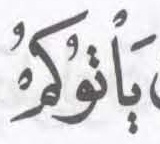 يَأْتُوكُمْ